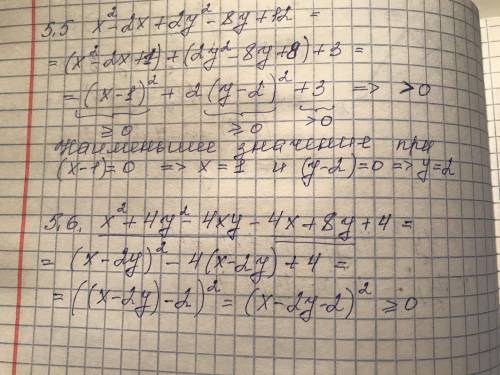 5.5 x²-2x+2y²-8y+12 =
= (x²-2x+1)+(2y²-8y+8)+3 =
= (x-1)²+2(y-2)²+3 => >0
≥0 ≥0 >0
Наименьшее значение при
(x-1)=0 => x=1 и (y-2)=0 => y=2
5.6. x²+4y²-4xy-4x+8y+4 =
= (x-2y)²-4(x-2y)+4 =
= ((x-2y)-2)² = (x-2y-2)² ≥0